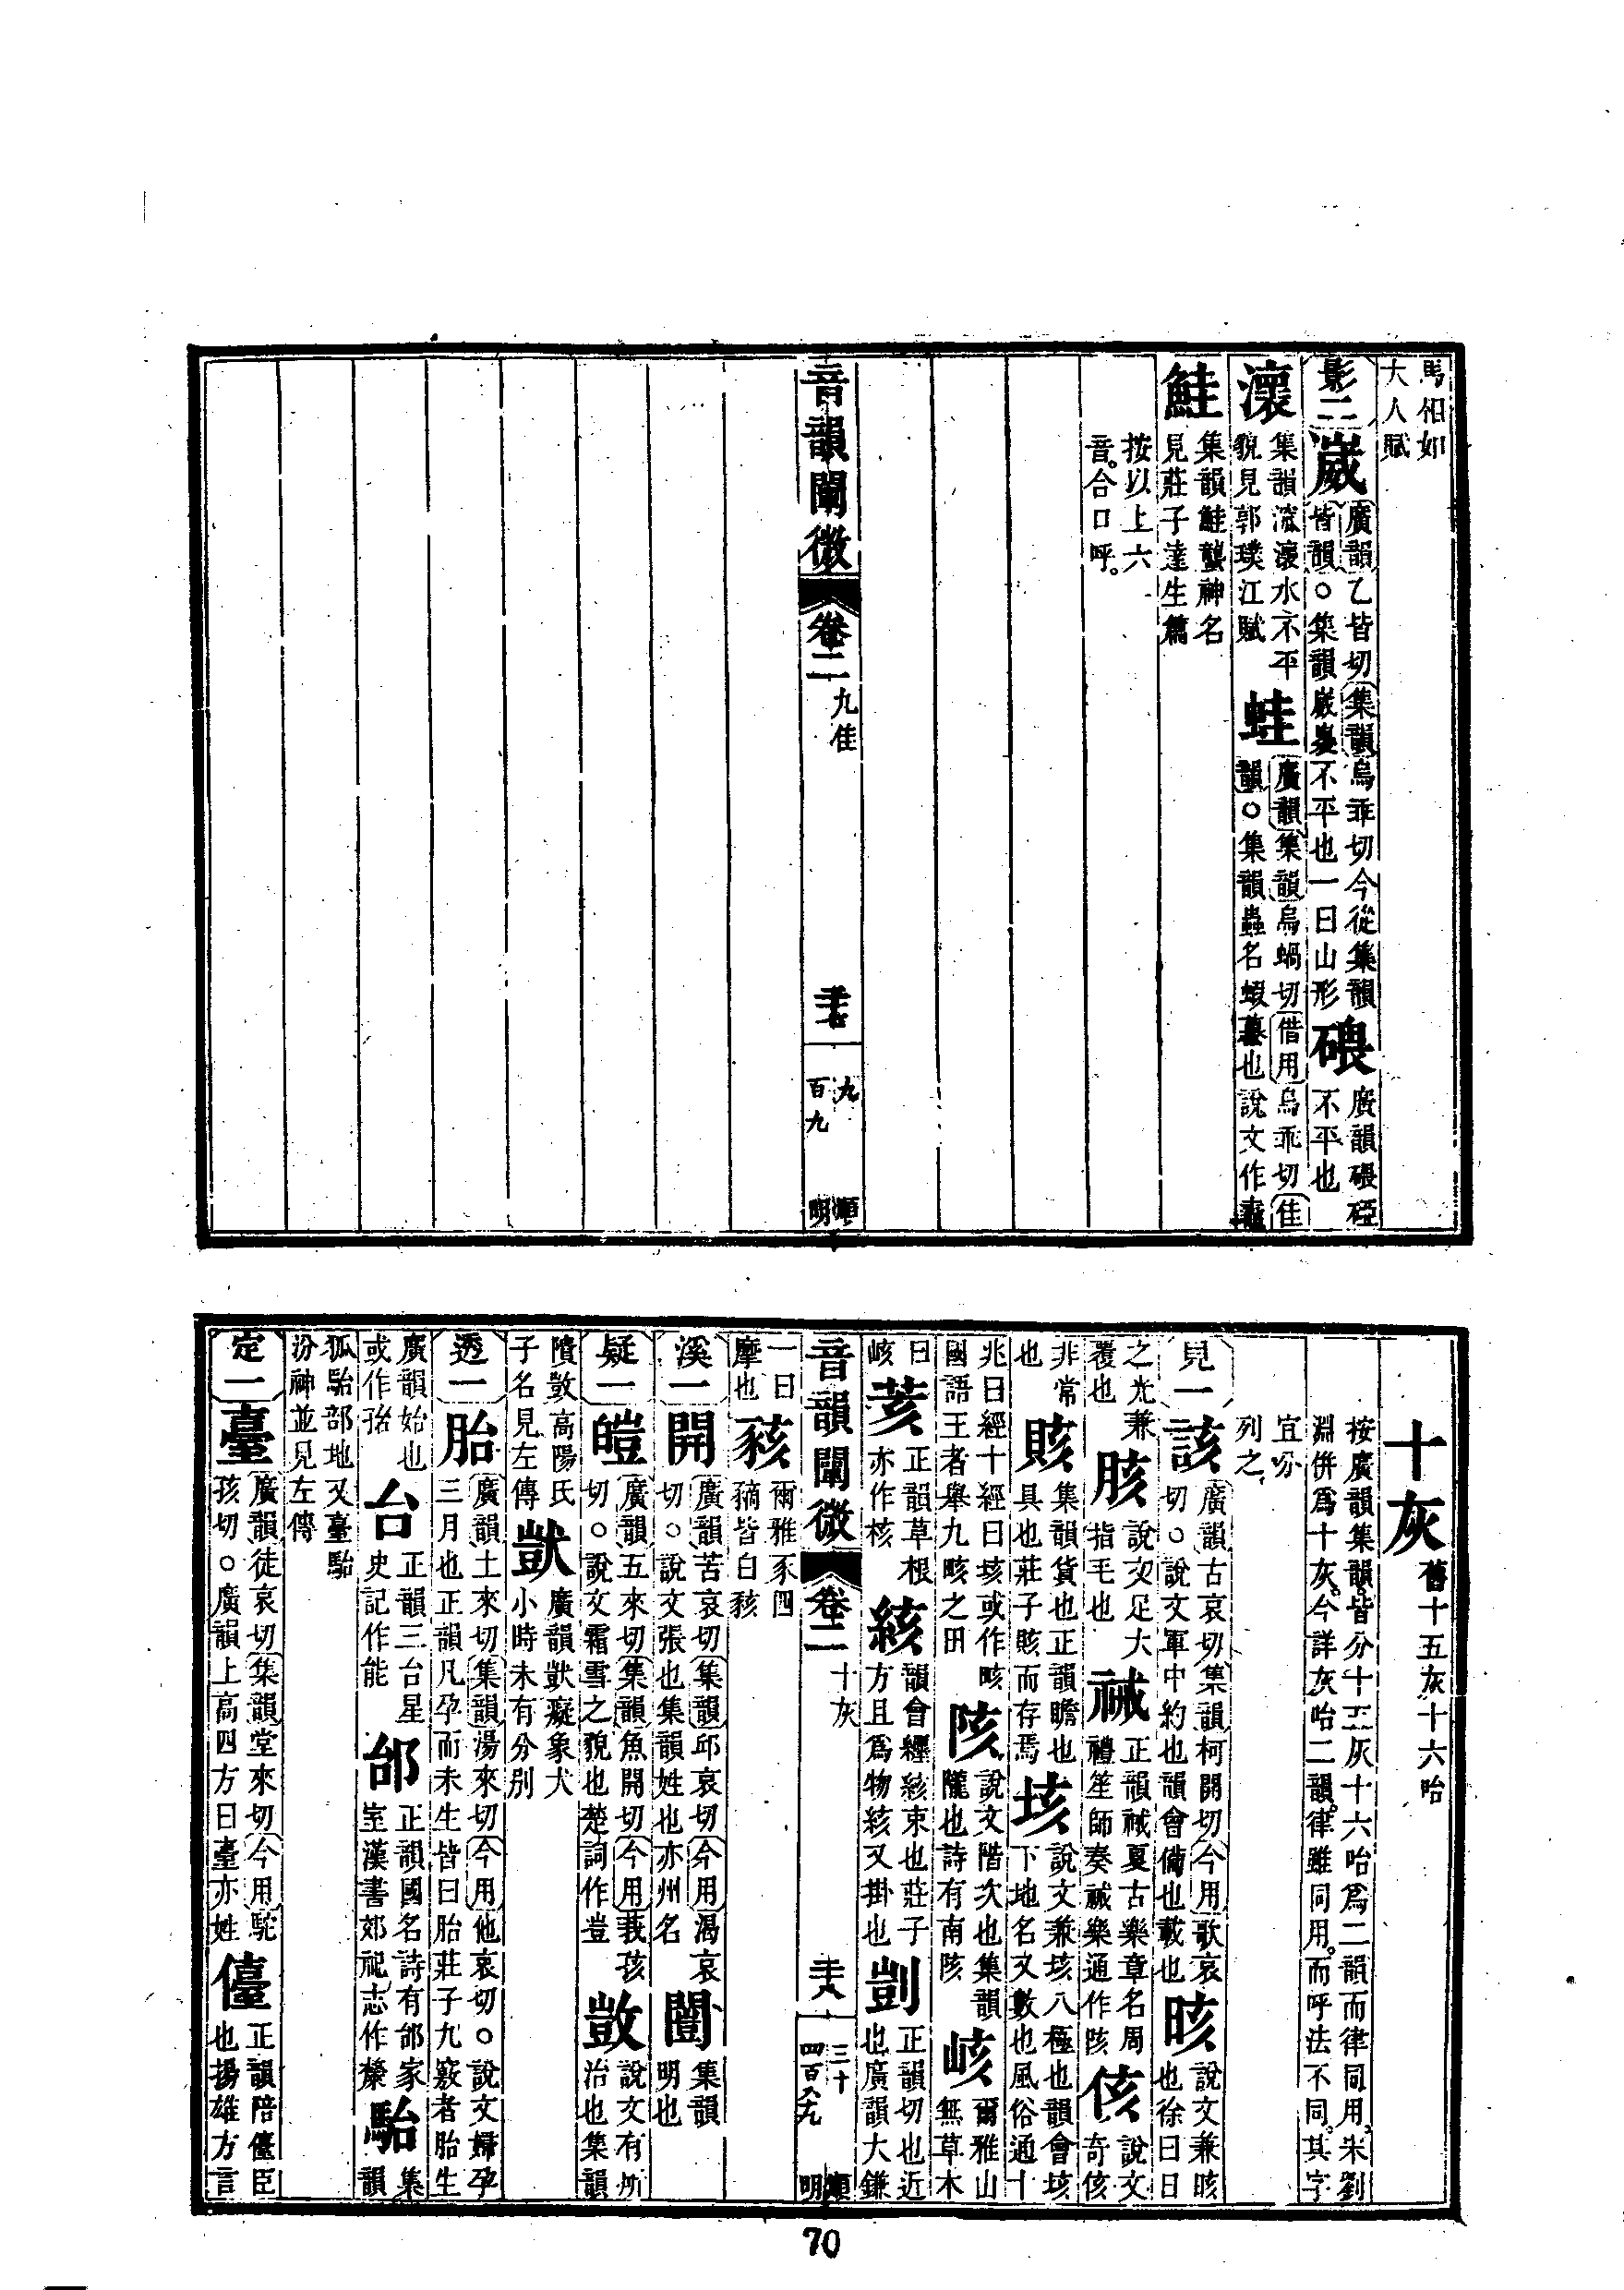 馬相如
大人賦
影二
崴
廣韻乙皆切集韻烏乖切今從集韻
皆韻○集韻崴㠢不平也一曰山形
碨
廣韻碨磈
不平也
瀤
集韻㴸瀤水不平
貌見郭璞江賦
蛙
廣韻集韻烏蝸切借用烏乖切佳
韻○集韻蟲名蝦蟇也說文作鼃
鮭
集韻鮭蠪神名
見莊子達生篇
按以上六
音合口呼
音韻闡微
卷二
九佳
九
百九
順
明
十灰
舊十五灰十六咍
按廣韻集韻皆分十五灰十六咍爲二韻而律同用朱劉
淵併爲十灰今詳灰咍二韻律雖同用而呼法不同其字
宜分
列之
見一
該
廣韻古哀切集韻柯開切今用歌哀
切○說文軍中約也韻會備也載也
晐
說文兼晐
也徐曰日
之光兼
覆也
胲
說文足大
指毛也
祴
正韻祴夏古樂章名周
禮笙師奏祴樂通作陔
侅
說文
奇侅
非常
也
賅
集韻貨也正韻贍也
具也莊子賅而存焉
垓
說文兼垓八極也韻會垓
下地名又數也風俗通十
兆曰經十經曰垓或作畡
國語王者舉九畡之田
陔
說文階次也集韻
隴也詩有南陔
峐
爾雅山
無草木
曰
峐
荄
正韻草根
亦作核
絯
韻會纏絯束也莊子
方且爲物絯又掛也
剴
正韻切也近
也廣韻大鎌
音韻闡微
卷二
十灰
三十
四百六九
順
明
一曰
摩也
豥
爾雅豕四
豴皆白豥
溪一
開
廣韻苦哀切集韻邱哀切今用渴哀
切○說文張也集韻姓也亦州名
闓
集韻
明也
疑一
皚
廣韻五來切集韻魚開切今用莪孩
切○說文霜雪之貌也楚詞作豈
敳
說文有所
治也集韻
隤敳高陽氏
子名見左傳
獃
廣韻獃癡象犬
小時未有分別
透一
胎
廣韻土來切集韻湯來切今用他哀切○說文婦孕
三月也正韻凡孕而未生皆曰胎莊子九竅者胎生
廣韻始也
或作孡
台
正韻三台星
史記作能
邰
正韻國名詩有邰家
室漢書郊祀志作斄
駘
集
韻
狐駘部地又臺駘
汾神並見左傳
定一
臺
廣韻徒哀切集韻堂來切今用駝
孩切○廣韻上高四方曰臺亦姓
儓
正韻陪儓臣
也揚雄方言
70